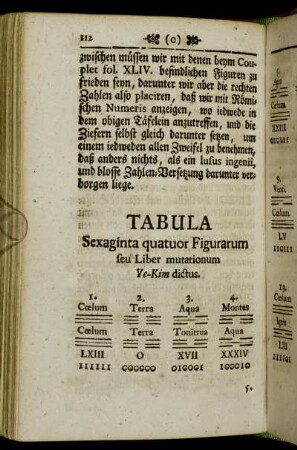 212 (o)
zwischen müssen wir mit denen beym Cou-
plet fol. XLIV. befindlichen Figuren zu
frieden seyn, darunter wir aber die rechten
Zahlen also placiren, daß wir mit Römi-
schen Numeris anzeigen, wo iedwede in
dem obigen Täfelein anzutreffen, und die
Ziefern selbst gleich darunter setzen, um
einem iedweden allen Zweifel zu benehmen,
daß anders nichts, als ein lusus ingenii,
und blosse Zahlen-Versetzung darunter ver-
borgen liege.
TABULA
Sexaginta quatuor Figurarum
seu Liber mutationum
Ye-Kim dictus.
1. 2. 3. 4.
Cœlum Terra Aqua Montes
Cœlum Terra Tonitrua Aqua
LXIII O XVII XXXIV
111111 000000 010001 100010
5.